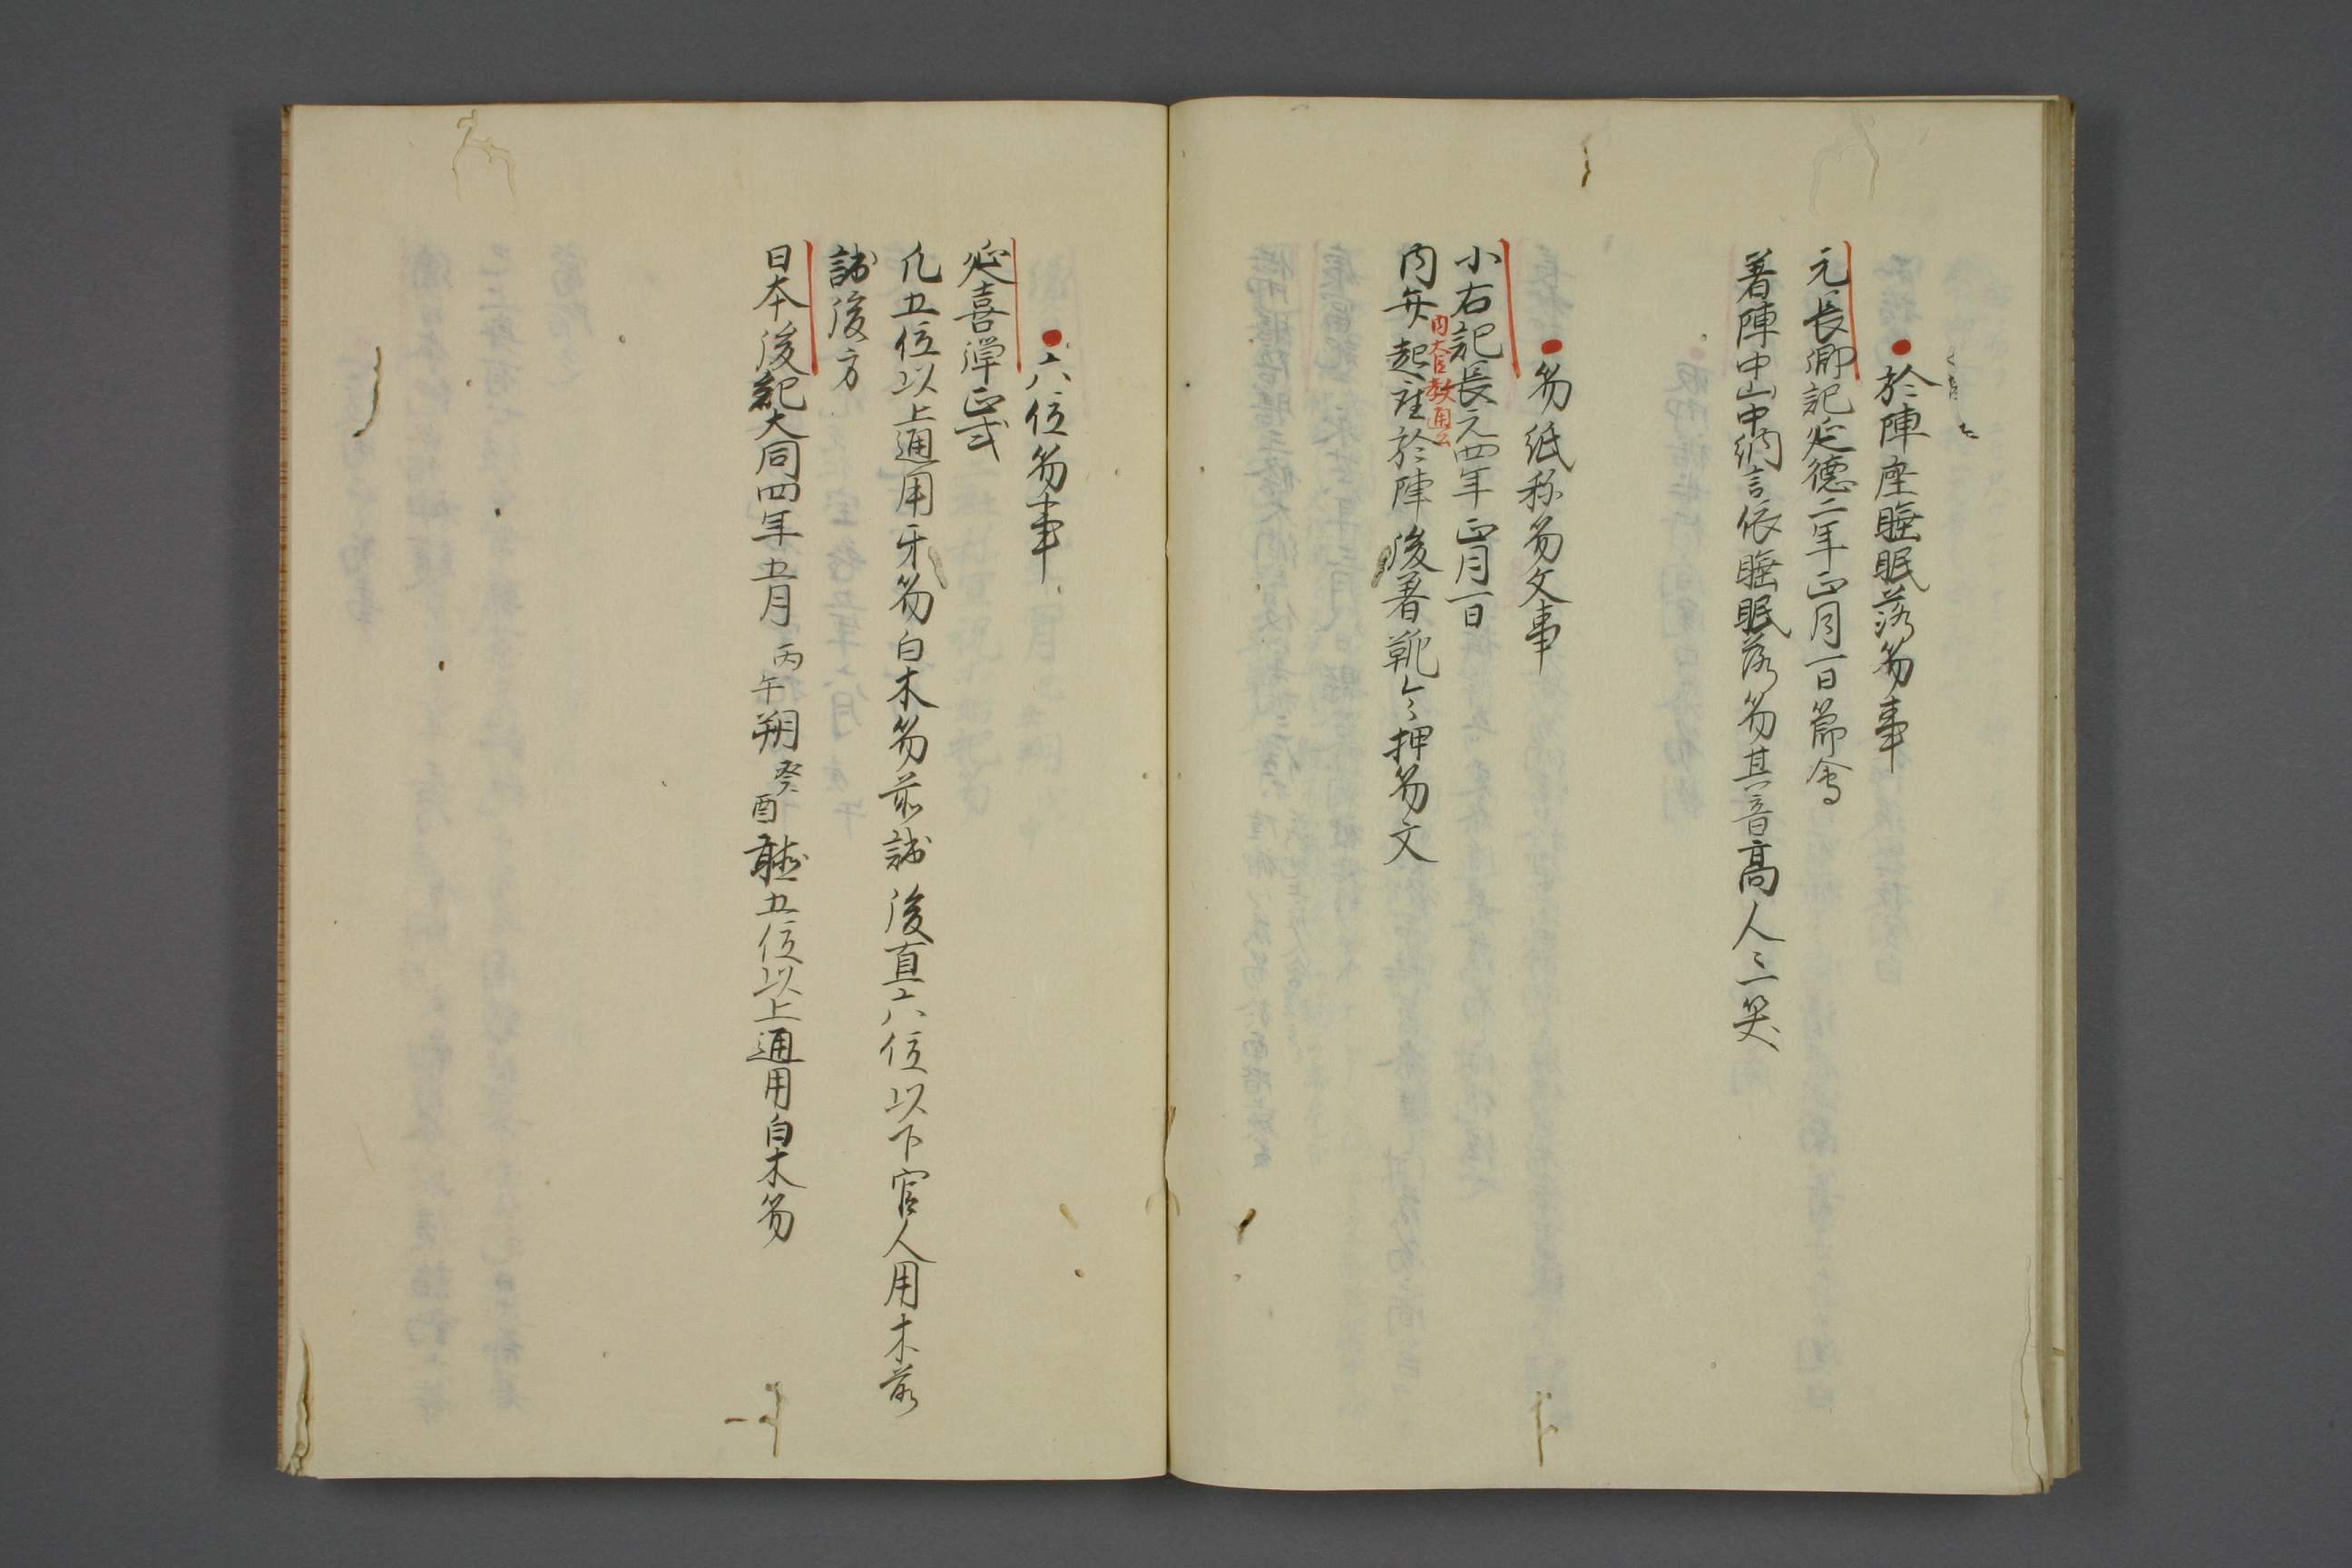 於陣座睡眠落笏事
元長卿記延徳二年正月一日節会
着陣中山中納言依睡眠落笏其音高人〻一咲
笏紙称笏文事
小右記長元四年正月一日
内弁起座於陣後着靴令押笏文
内大臣教通公
六位笏事
延喜弾正式
凡五位以上通用牙笏白木笏前詘後直六位以下官人用木前
詘後方
日本後紀大同四年五月丙午朔癸酉聴五位以上通用白木笏